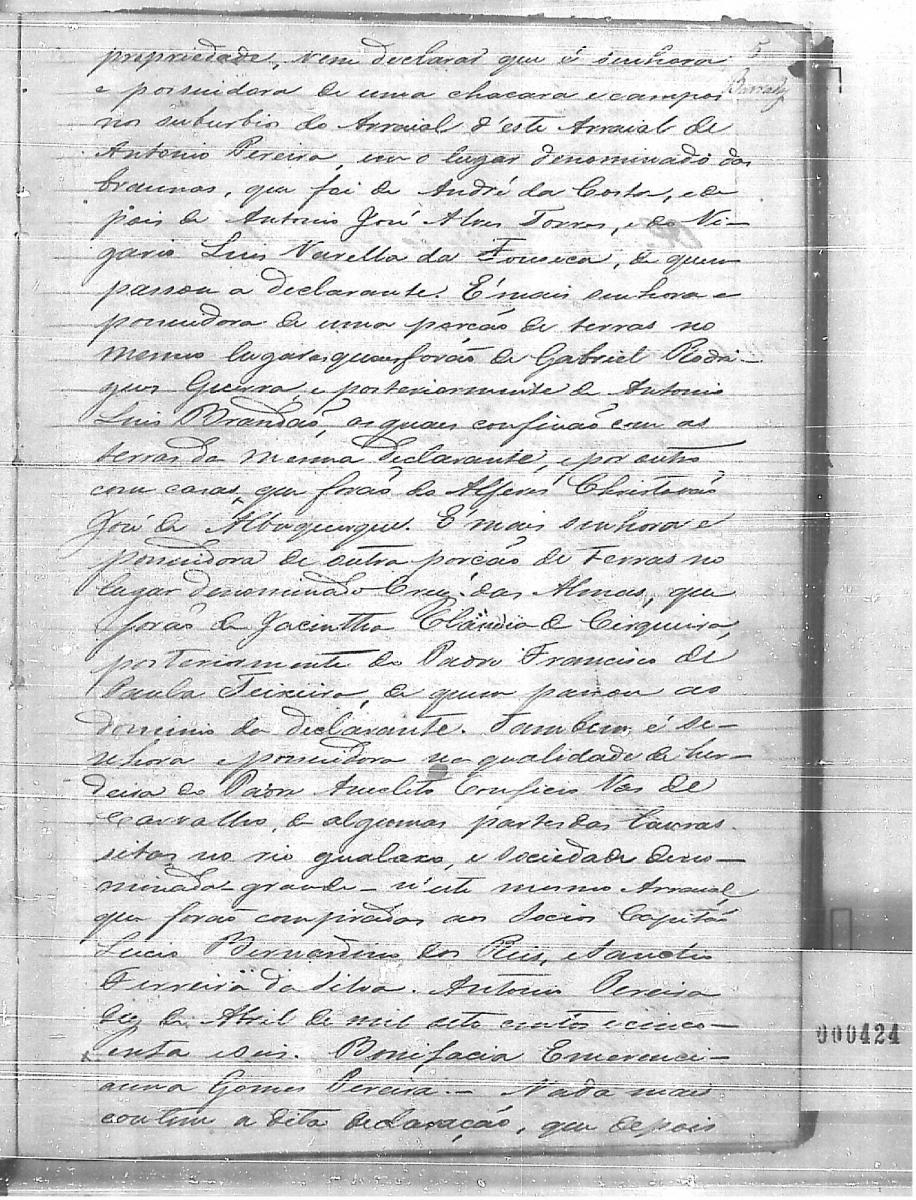 5
propriedade, vem declarar que é senhora
e possuidora de uma chacara e campos
nos suburbios do Arraial d'este Arraial de
Antonio Pereira, em o lugar denominado das
braunas, que foi de André da Costa, e de
pois de Antonio José Alves Torres, e do Vi-
gario Luis Varella da Fonseca, de quem
passou a declarante. É mais senhora e
possuidora de uma porção de terras no
mesmo lugar as quaes forão de Gabriel Rodri-
gues Guerra, e posteriormente de Antonio
Luis Brandão, as quaes confinão com as
terras da mesma declarante, e por outro
com casas, que forão do Alferes Christovão
José de Albuquerque. É mais senhora e
possuidora de outra porção de terras no
lugar denominado Cruz das Almas, que
forão de Jacintha Claudia de Cerqueira,
posteriormente do Padre Francisco de
Paula Teixeira, de quem passou ao
dominio da declarante. Tambem é se-
nhora e possuidora na qualidade de her-
deira do Padre Anacleto Vas de
Carvalho, de algumas partes das Lavras
sitas no rio gualaxo, e sociedade deno-
minada - grande - n'este mesmo Arraial,
que forão compradas aos Socios Capitão
Lucio Bernardino dos Reis, e
Ferreira da Silva. Antonio Pereira
dez de Abril de mil oito centos e cinco-
enta e seis. Bonifacia Emerenci-
anna Gomes Pereira. - Nada mais
contem a dita declaração, que depois
000424